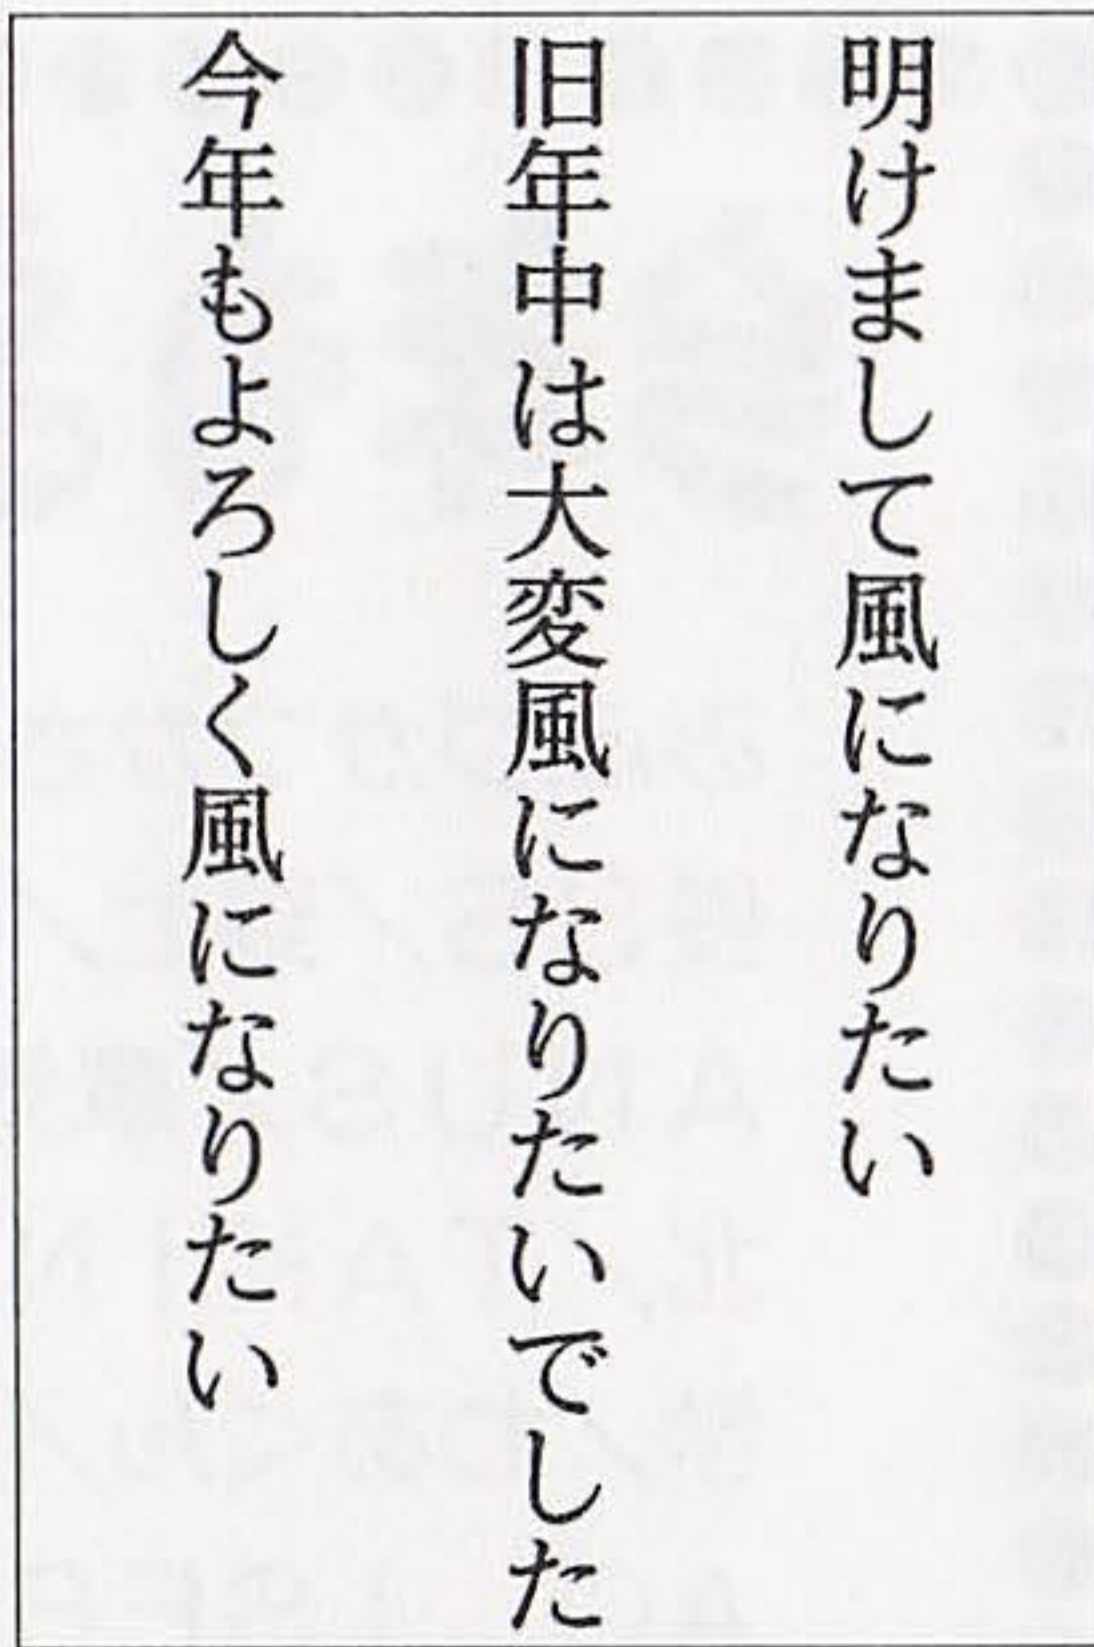 明けまして風になりたい
旧年中は大変風になりたいでした
今年もよろしく風になりたい